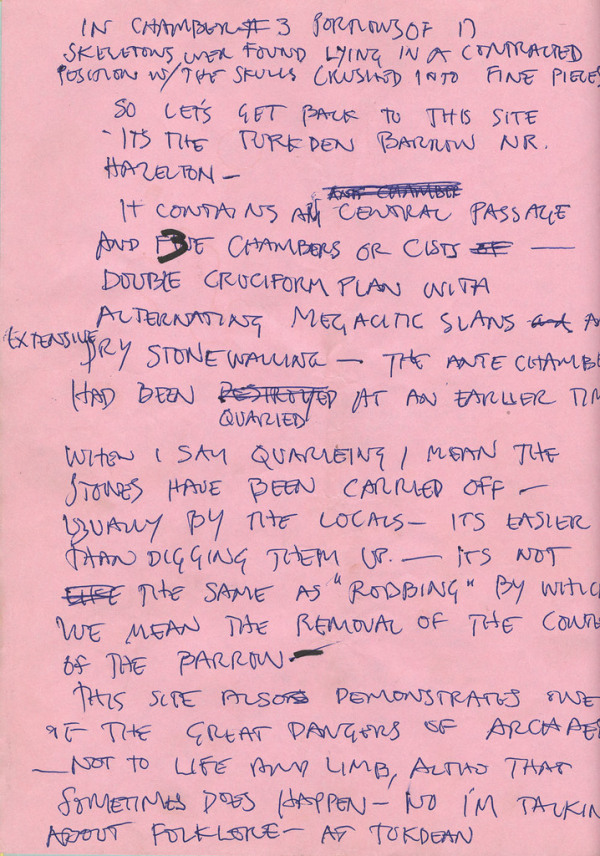 IN CHAMBER # 3 PORTIONS OF 17
SKELETONS WER FOUND LYING IN A CONTRACTED
POSITION W/ THE SKULLS CRUSHED INTO FINE PIECES
SO LET'S GET BACK TO THIS SITE
- ITS THE TURKDEN BARROW NR.
HAZELTON —
ANTE CHAMBER
IT CONTAINS AN CENTRAL PASSAGE
AND 3 CHAMBERS OR CISTS OF —
DOUBLE CRUCIFORM PLAN WITH
ALTERNATING MEGALITIC SLANS and A
EXTENSIVE
DRY STONEWALLING — THE ANTE CHAMBE
HAD BEEN DESTROYED AT AN EARLIER TIM
QUARIED
WHEN I SAY QUARREING I MEAN THE
STONES HAVE BEEN CARRIED OFF —
USUALLY BY THE LOCALS — ITS EASIER
THAN DIGGING THEM UP. — ITS NOT
THE SAME AS "ROBBING" BY WHICH
WE MEAN THE REMOVAL OF THE CONTE
OF THE BARROW —
THIS SITE ALSO DEMONSTRATES ONE
OF THE GREAT DANGERS OF ARCHAEO
— NOT TO LIFE AND LIMB, ALTHO THAT
SOMETIMES DOES HAPPEN — NO I'M TALKIN
ABOUT FOLKLORE — AT TURDEAN